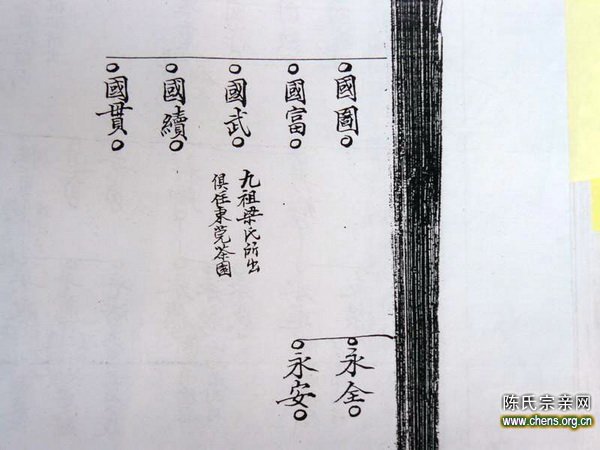 國固
國富
國武
國續
國貫
九祖梁氏所出
俱住東莞茶園
永全
永安
陈氏宗亲网
www.chens.org.cn